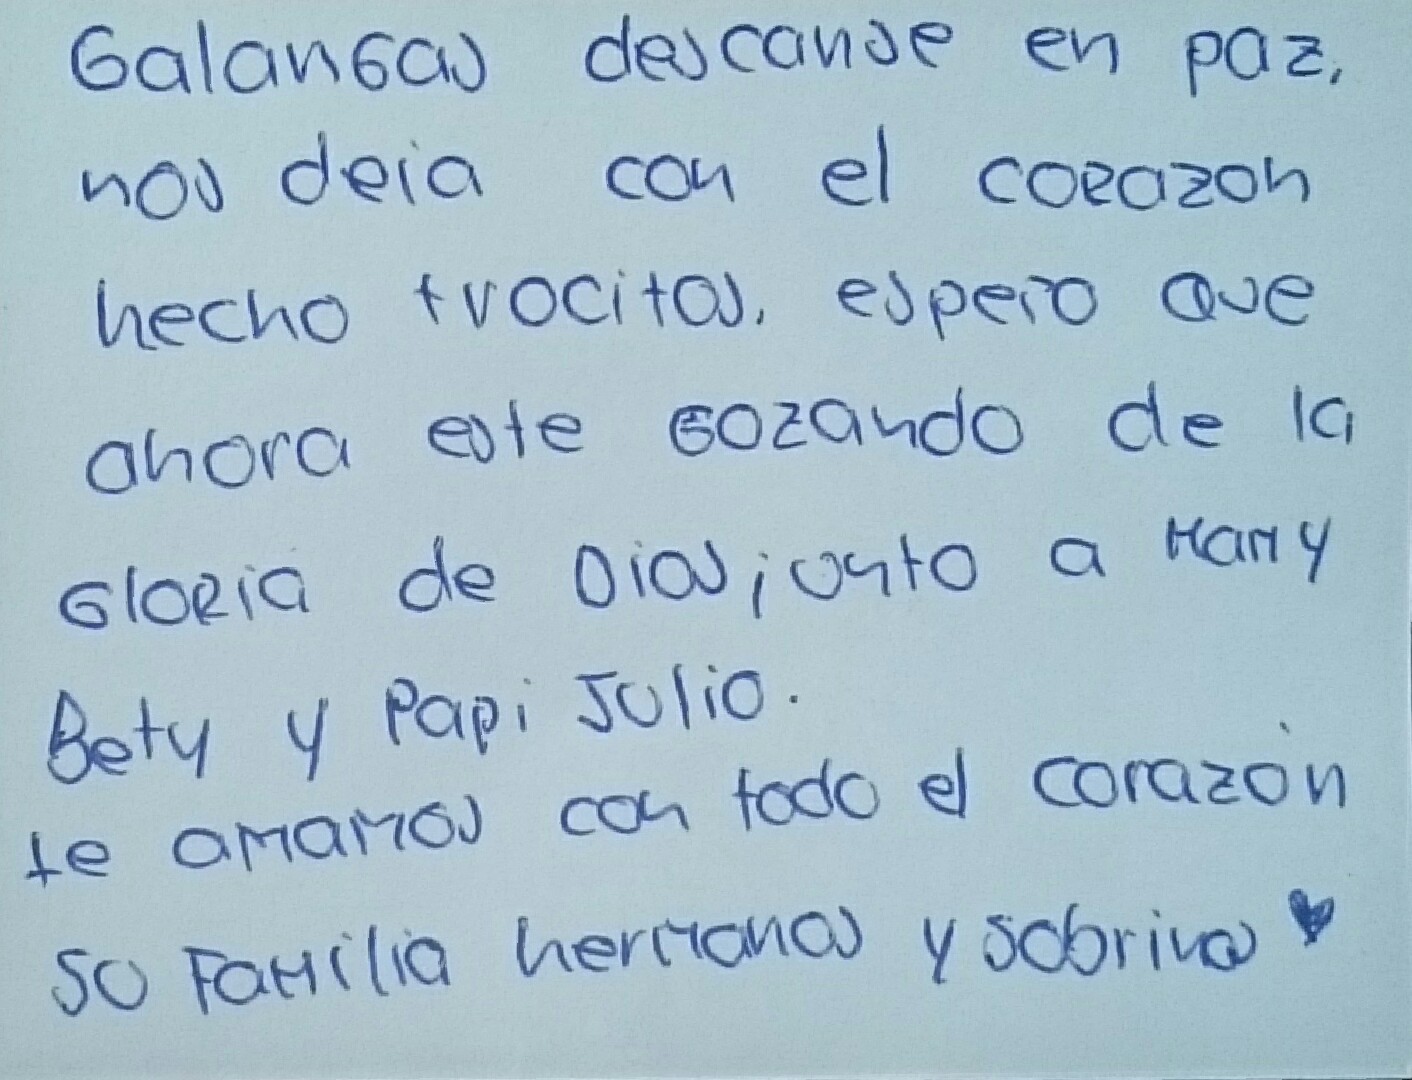 Galangas descanse en paz,
nos deja con el corazon
hecho trocitos, espero que
ahora este gozando de la
Gloria de Dios junto a Mamy
Bety y Papi Julio.
te amamos con todo el corazón
su Familia hermanos y sobrinos ♥